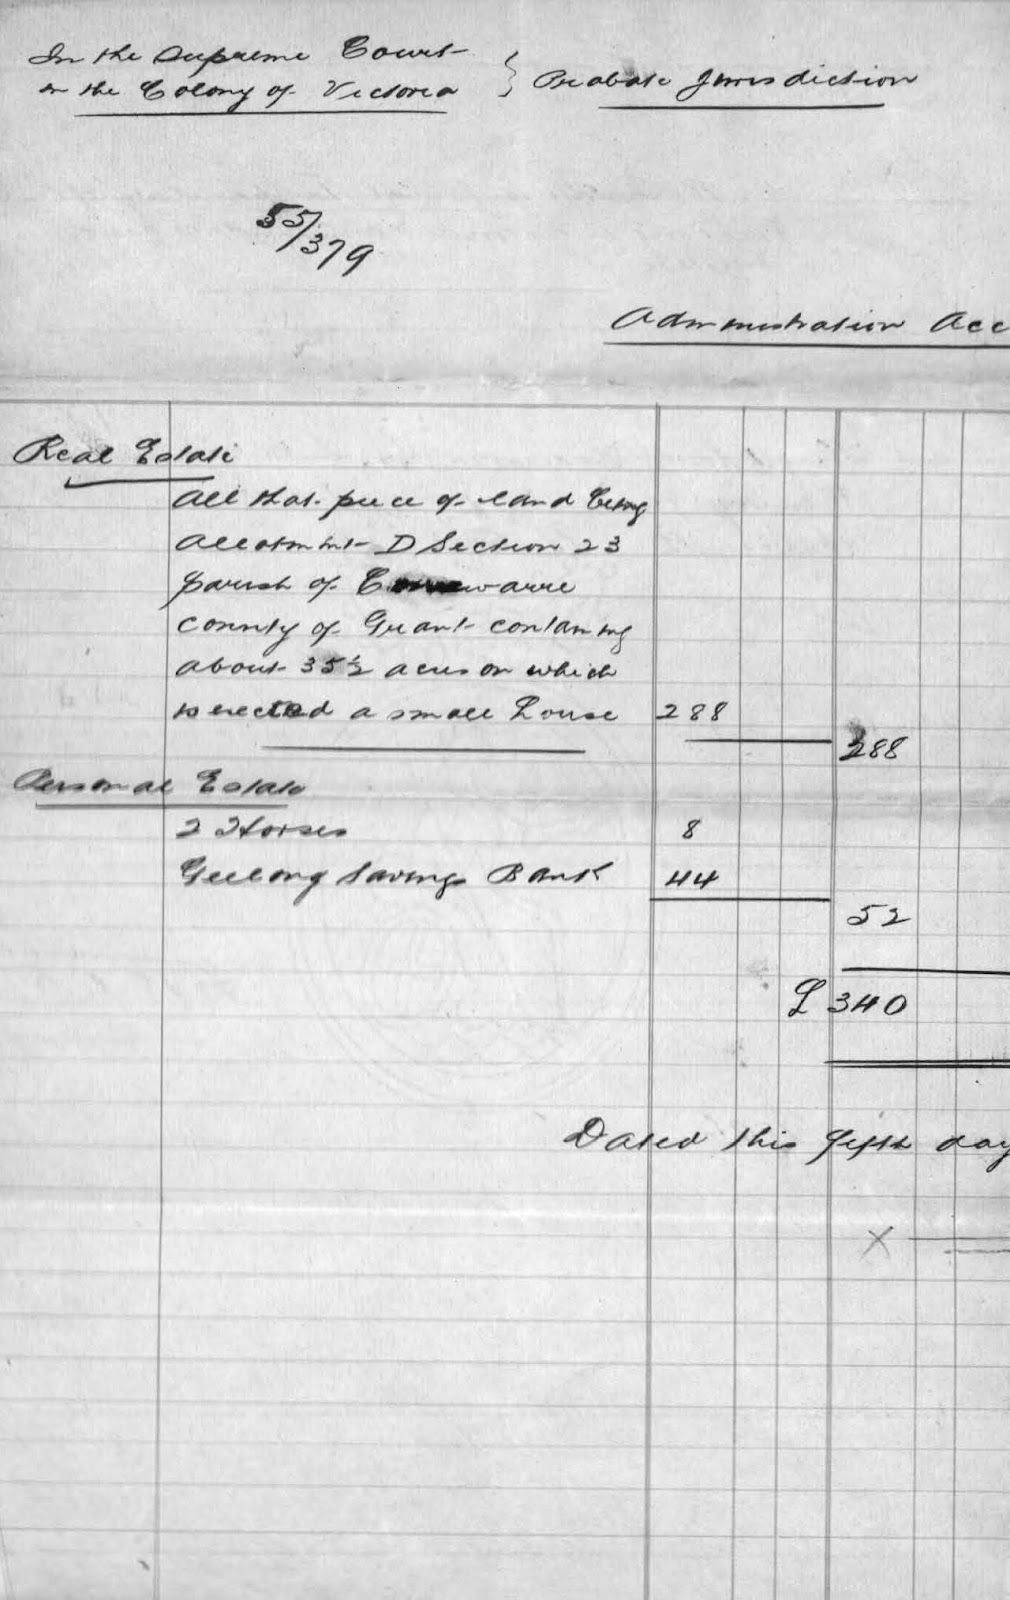 In the Supreme Court
in the Colony of Victoria
} Probate Jurisdiction
55/379
Administration Acc
Real Estate
All that piece of land being
Allotment D Section 23
parish of
county of Grant containing
about 35½ acres on which
is erected a small house 288
288
Personal Estate
2 Horses 8
Geelong Savings Bank 44
52
£ 340
Dated this fifth day
X